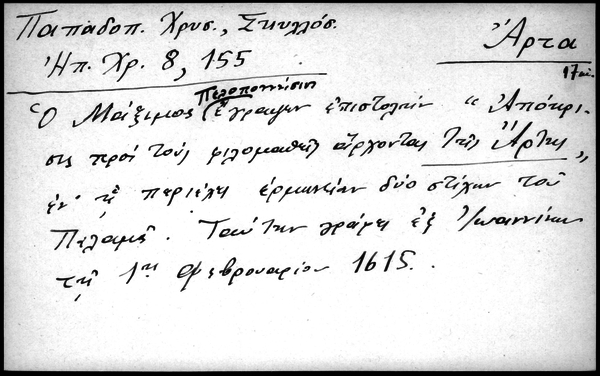 Παπαδοπ. Χρυσ., Σκυλλόσ.
Ἄρτα
Ἠπ. Χρ. 8, 155
17 αἰ.
Πελοποννήσιος
Ὁ Μάξιμος ἔγραψεν ἐπιστολὴν "Ἀπόκρι-
σις πρὸς τοὺς φιλομαθεῖς ἄρχοντας τῆς Ἄρτης"
ἐν ᾗ περιέχει ἑρμηνείαν δύο στίχων τοῦ
Ταύτην γράφει ἐξ Ἰωαννίνων
τῇ 1ῃ Φεβρουαρίου 1615.